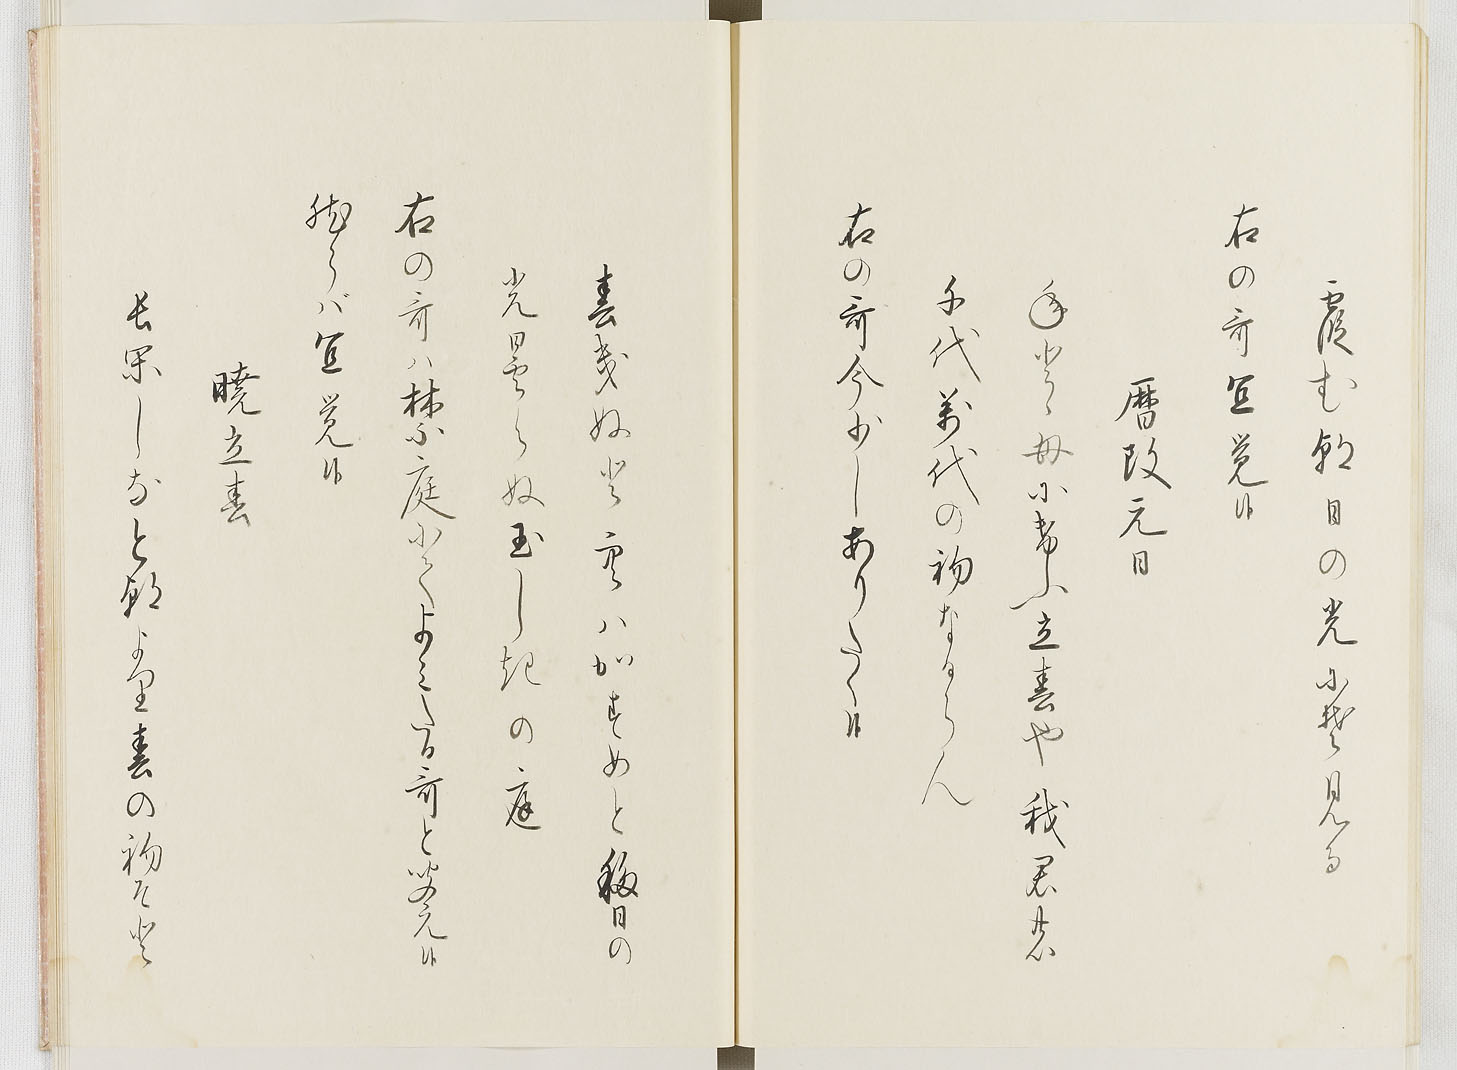 霞む朝日の光にそ見る
右の哥宜覚候
暦改元日
年とし毎にけふ立春や我君の
千代萬代の初なるらん
右の哥今少しありたく候
春きぬと空ハかすめと移日の
光曇らぬ玉しきの庭
右の哥ハ禁庭にてよミたる哥と聞え候
然らバ宜覚候
暁立春
長閑しなと朝より春の初そと